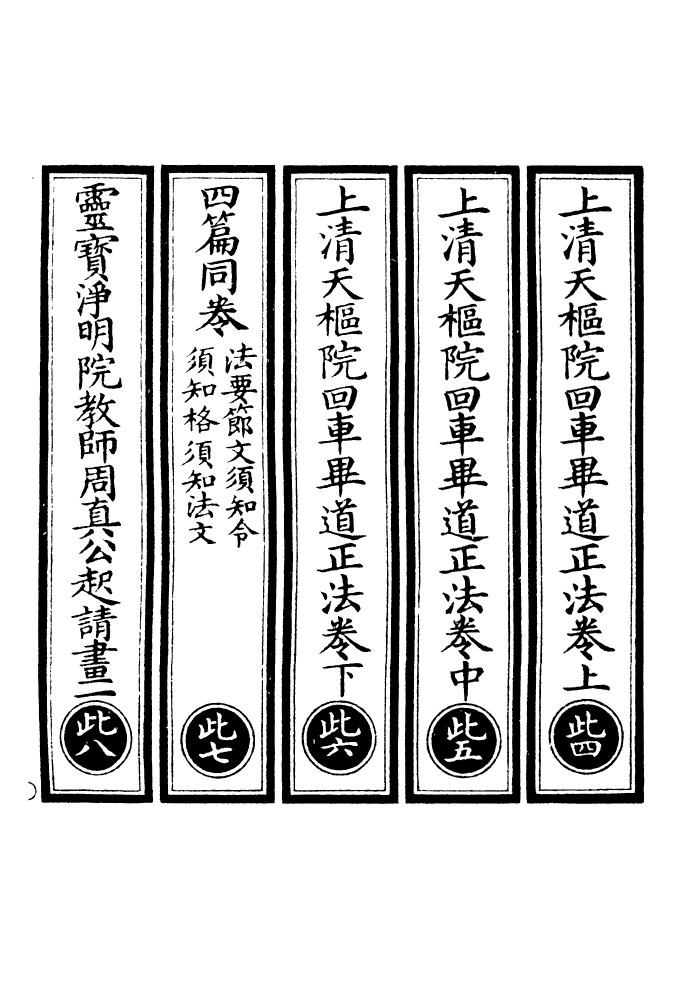 上清天樞院回車畢道正法卷上
此四
上清天樞院回車畢道正法卷中
此五
上清天樞院回車畢道正法卷下
此六
四篇同卷
法要節文須知令
須知格須知法文
此七
靈寶淨明院教師周真公起請畫一
此八